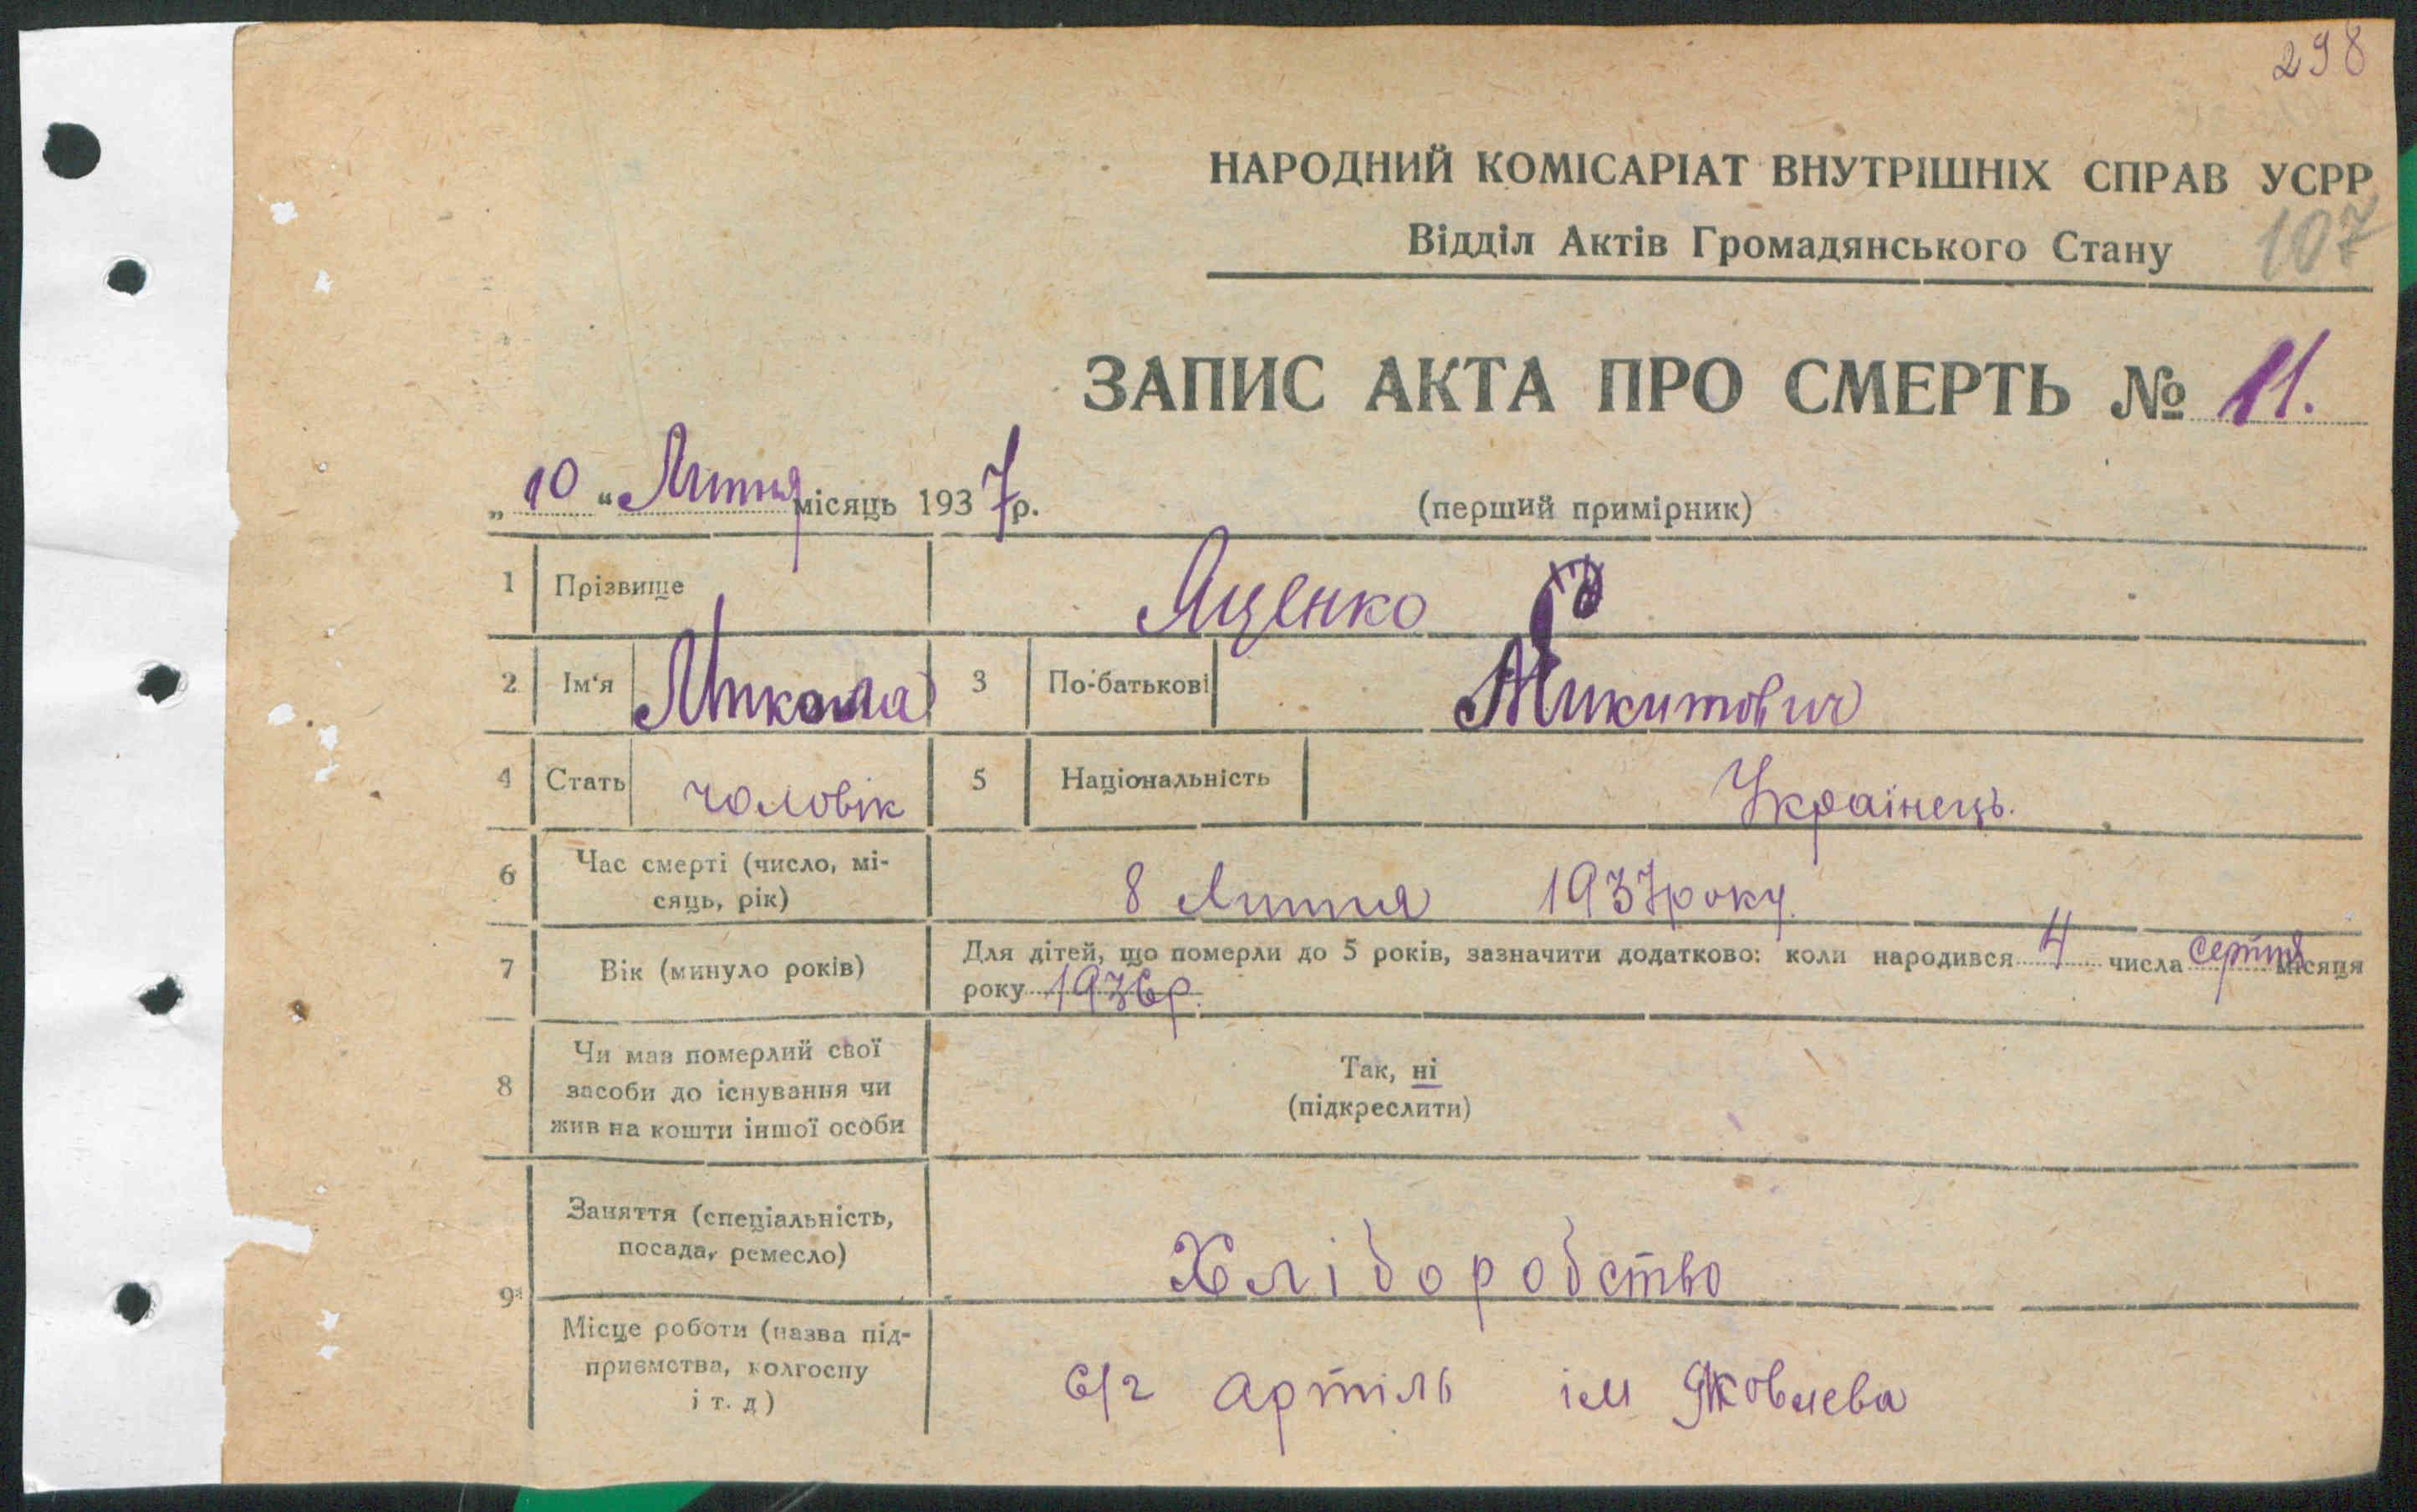 298
НАРОДНИЙ КОМІСАРІАТ ВНУТРІШНІХ СПРАВ УСРР
Відділ Актів Громадянського Стану 107
ЗАПИС АКТА ПРО СМЕРТЬ № 11.
„ 10 “ Липня місяць 1937 р.
(перший примірник)
1 Прізвище Яценко
2 Ім‘я Микола 3 По-батькові Микитович
4 Стать чоловік 5 Національність Українець.
6 Час смерті (число, мі-
сяць, рік) 8 Липня 1937 року.
7 Вік (минуло років) Для дітей, що померли до 5 років, зазначити додатково: коли народився 4 числа серпня місяця
року 1936р.
8 Чи мав померлий свої
засоби до існування чи
жив на кошти іншої особи
Так, ні
(підкреслити)
9 Заняття (спеціальність,
посада, ремесло) Хліборобство
Місце роботи (назва під-
приємства, колгоспу
і т. д) С/г артіль ім Яковлева